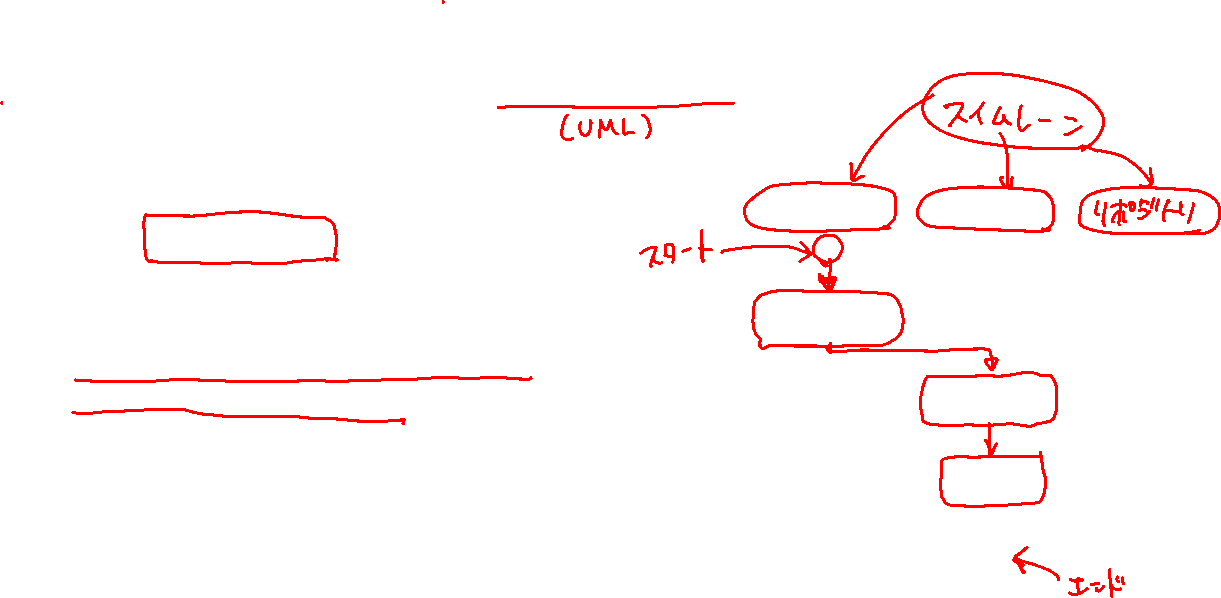 (UML)
スイムレーン
リポジトリ
スタート
エンド